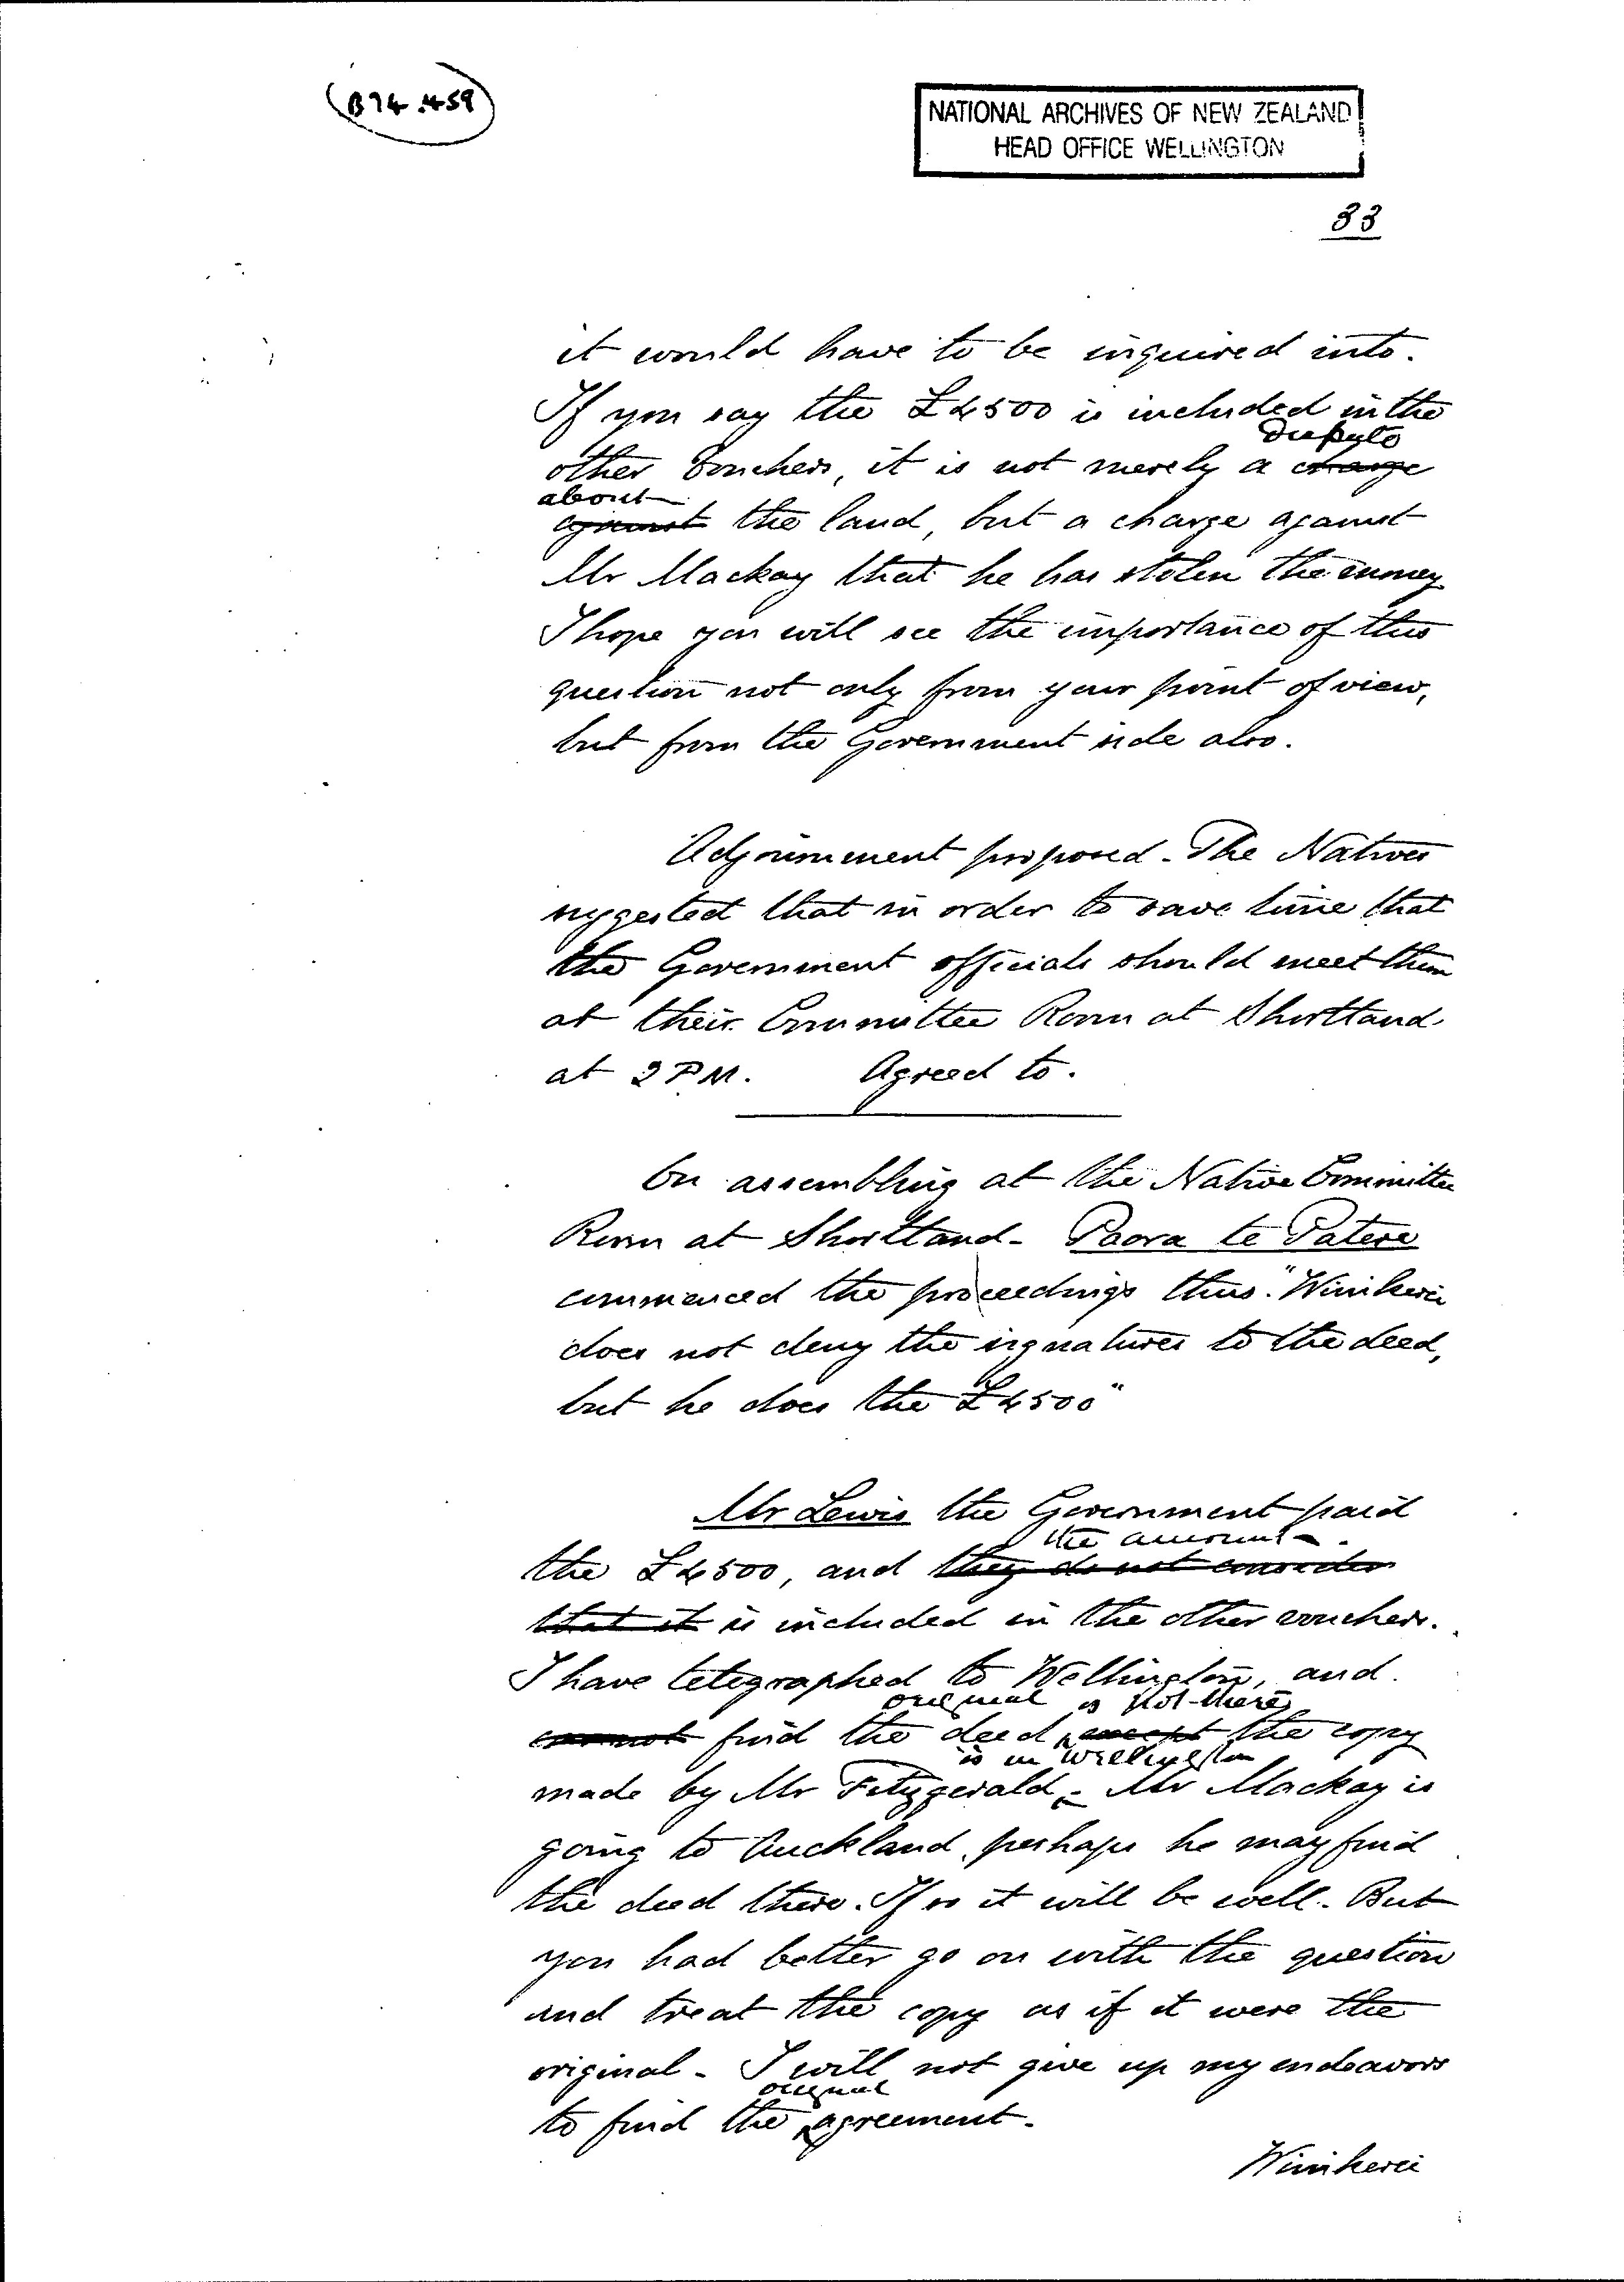 B74.459
NATIONAL ARCHIVES OF NEW ZEALAND
HEAD OFFICE WELLINGTON
33
it would have to be inquired into.
If you say the £4500 is included in the
dispute
other vouchers, it is not merely a charge
about
against the land, but a charge against
Mr Mackay that he has stolen the money
I hope you will see the importance of this
question not only from your point of view,
but from the Government side also.
Adjournment proposed - The Natives
suggested that in order to save time that
the Government officials should meet them
at their Committee Room at Shortland
at 2 P.M. Agreed to.
On assembling at the Native Committee
Room at Shortland - Paora te Patere
commenced the proceedings thus. "Winikerei
does not deny the signatures to the deed,
but he does the £4500"
Mr Lewis the Government paid
the amount
the £4500, and they do not consider
that it is included in the other vouchers.
I have telegraphed to Wellington, and
original is not there
cannot find the deed, except the copy
is in Wellington
made by Mr Fitzgerald; Mr Mackay is
going to Auckland, perhaps he may find
the deed there. If so it will be well. But
you had better go on with the question
and treat the copy as if it were the
original - I will not give up my endeavors
original
to find the agreement.
Winikerei